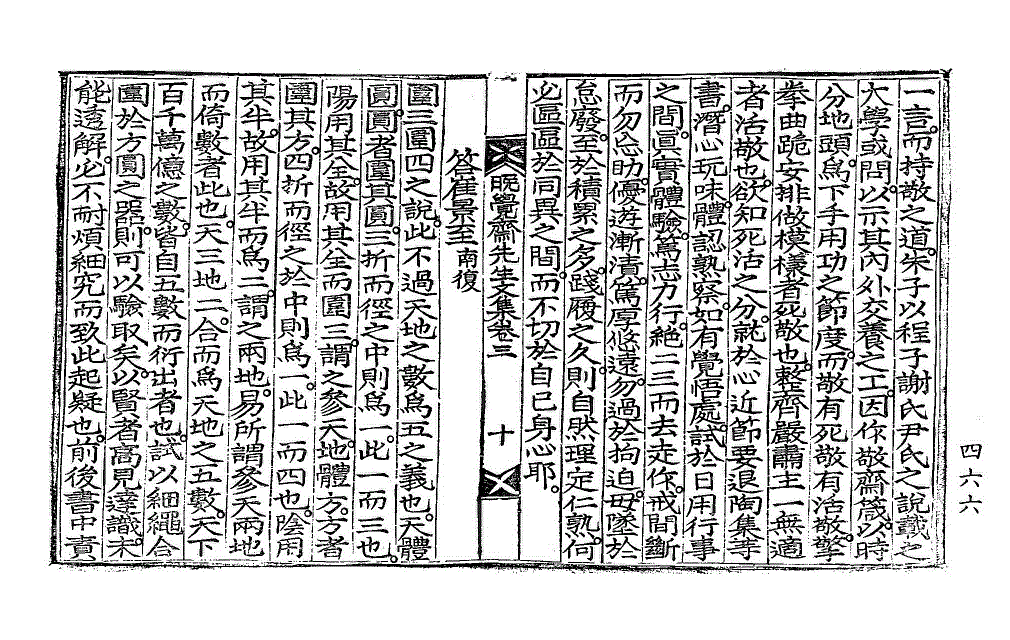 一言。而持敬之道。朱子以程子謝氏尹氏之說。載之
大學或問。以示其內外交養之工。因作敬齋箴。以時
分地頭。爲下手用功之節度。而敬有死敬有活敬。擎
拳曲跪。安排做模樣者死敬也。整齊嚴肅主一無適
者活敬也。欲知死活之分。就於心近節要退陶集等
書。潛心玩味。體認熟察。如有覺悟處。試於日用行事
之間。眞實體驗。篤志力行。絶二三而去走作。戒間斷
而勿忘助。優遊漸漬。篤厚悠遠。勿過於拘迫。毋墜於
怠廢。至於積累之多。踐履之久。則自然理定仁熟。何
必區區於同異之間。而不切於自己身心耶。
晩覺齋先生文集卷三
十
答崔景至南復
圍三圍四之說。此不過天地之數爲五之義也。天體
圓。圓者圍其圓。三折而徑之中則爲一。此一而三也。
陽用其全。故用其全而圍三。謂之參天。地體方。方者
圍其方。四折而徑之於中則爲一。此一而四也。陰用
其半。故用其半而爲二。謂之兩地。易所謂參天兩地
而倚數者此也。天三地二。合而爲天地之五數。天下
百千萬億之數。皆自五數而衍出者也。試以細繩。合
圍於方圓之器。則可以驗取矣。以賢者高見達識。未
能透解。必不耐煩細究而致此起疑也。前後書中責
四六六